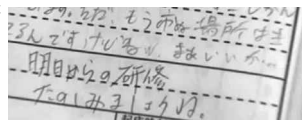 ただ、もう 場所は
るんですけどね。まあいいか…
明日からの研修
たのしみましょうね。